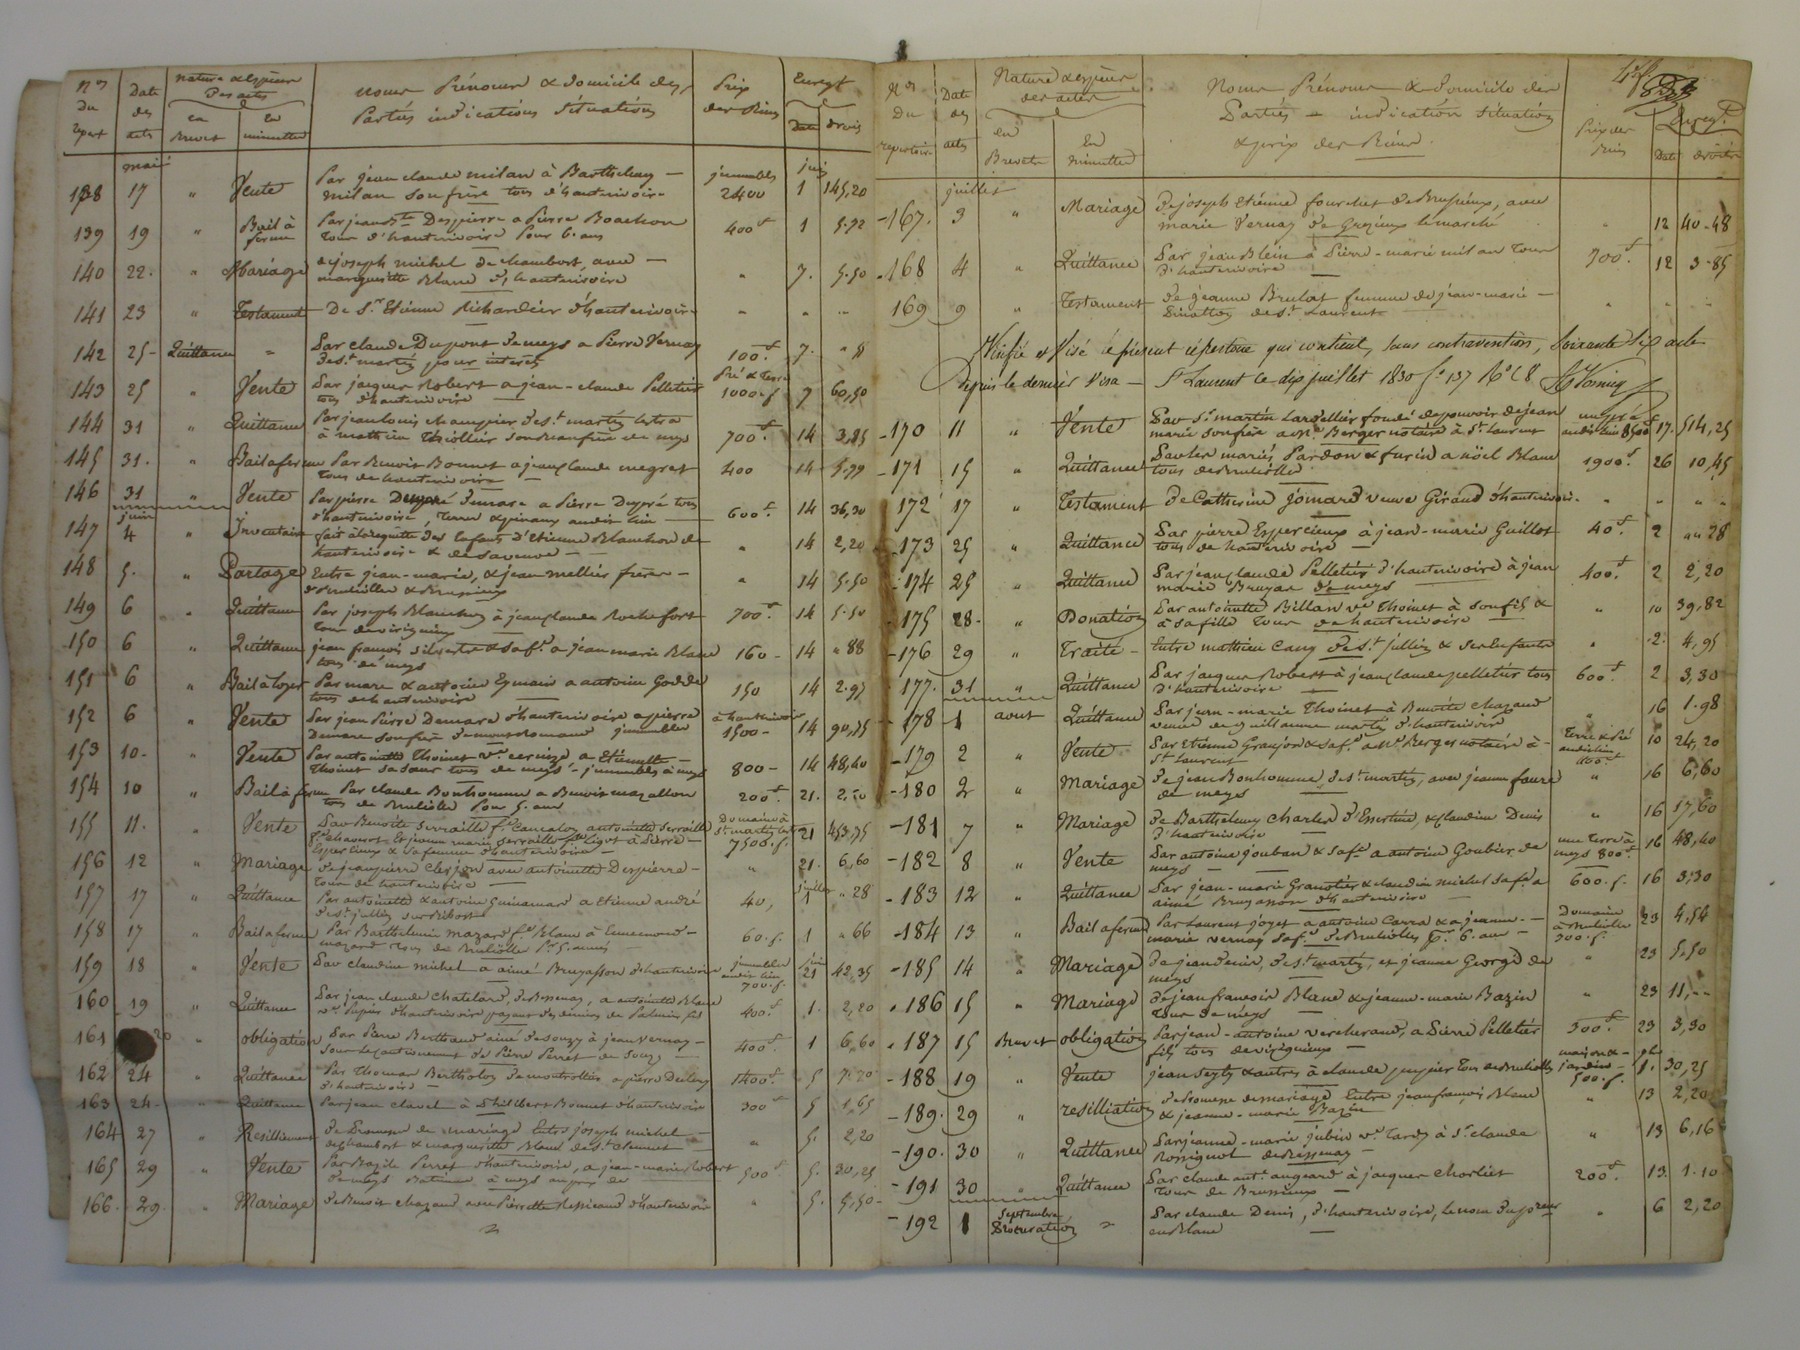 Nos du Répert | Date des actes | Nature & Espèces Des actes | en Brevet | En minutte | Noms Prénoms & Domicile des Parties indications Situations | Prix des Biens | Enregt | Date | droits
mai | juin
138 17 " Vente Par jean claude milan à Barthelemy — jmmeubles 1 145,20
milan son frère tous d'hauterivoire 2400
139 19 " Bail à ferme Par jean Bte Despierre a Pierre Boachon 400f 1 5.92
Tous d'hauterivoire Pour 6. ans
140 22. " Mariage de joseph michel de chambost, avec — " 7. 5.50
marguerite Blanc d'hauterivoire
141 23 " Testament De Sr Etienne Richardier d'hauterivoire " " "
142 25 Quittance " Par claude Dupont de meys a Pierre Vernay 100f 7.
de st martin pour interets
143 25 " Vente Par jacques Robert a jean-claude Pelletier Pré & Terre 7 60,50
tous d'hauterivoire 1000.f
144 31 " Quittance Par jean louis champier de st martin
à mathieu Thiollier son beau frère de meys 700f 14 3,85
145 31. " Bail a ferme Par Benoit Bonnet a jean claude megret 400 14 5.99
Tous de hauterivoire
146 31 " Vente Par pierre a Pierre Dupré tous 600f 14 36,30
d'hauterivoire, Terres
juin
147 4 " Inventaire fait à la requête des Enfants d'Etienne Blanchon de " 14 2,20
hauterivoire & de sa veuve
148 5. " Partage Entre jean-marie, & jean mellier frères — " 14 5.50
de Brulioles & Brussieux
149 6 " Quittance Par joseph Blanchon à jean claude Rochefort 700f 14 5.50
Tous de virigneux
150 6 " Quittance jean françois silvestre & sa fe a jean marie Blanc 160 - 14 " 88
tous de meys
151 6 " Bail à loyer Par marc & antoine Eymain a antoine Godde 150 14 2.97
tous de hauterivoire
152 6 " Vente Par jean Pierre Demare d'hauterivoire a pierre à hauterivoire 14 90,75
Demare son frère de montromand jmmeubles 1500 -
153 10 - " Vente Par antoinette Thoinet ve a Etiennette —
Thoinet sa sœur tous de meys - jmmeubles à meys 800 - 14 48,40
154 10 " Bail à ferme Par Claude Bonhomme a Benoit mazallon 200f 21. 2,20
tous de Brulioles Pour 5. ans
155 11. " Vente Par Benoite Servaille antoinette Servaille Domaine à
st martin 21 453,75
Espercieux & sa femme d'hauterivoire 7500.f
156 12 " Mariage de jean pierre Clerjon avec antoinette Despierre — " 21. 6,60
tous de hauterivoire
juillet
157 17 " Quittance Par antoinette & antoine Guinamard a Etienne andré 40, 1 " 28
de st julien sur Bibost
158 17 " Bail a ferme Par Barthelemie mazard ve Blanc à Ennemond — 60.f. 1 " 66
mazard tous de Brulioles Pr 5. années
159 18 " Vente Par claudine michel a aimé Bruyasson d'hauterivoire jmmeubles audit lieu 21 42,35
700.f.
160 19 " Quittance Par jean claude Chatelard, de Bessenay, a antoinette Blanc 400f 1. 2,20
ve Pupier d'hauterivoire payant des deniers de
161 20 obligation Par Pierre Berthaud ainé de souzy à jean Vernay — 400f 1 6,60
sous le cautionnement de Pierre Perret de Souzy
162 24 " Quittance Par Thomas Bertholon de montrottier a pierre 1400f 5 7.70
d'hauterivoire
163 24 " Quittance Par jean clavel à Philibert Bonnet d'hauterivoire 300f 5 1,65
164 27 " Résilliement de Promesse de mariage Entre joseph michel — " 5. 2,20
de chambost & marguerite Blanc de st clement
165 29 " Vente Par Bazile Perret d'hauterivoire, a jean-marie Robert 500f 5. 30,25
de meys Batiment à meys au prix de
166. 29. " Mariage de Benoit chazaud avec Pierrette Ressicaud d'hauterivoire " 5. 5,50
Nos Du repertoire | Date des actes | Nature & espèces des actes | en Brevet | En minutte | Noms Prénoms & Domicile des Parties — indication Situation & prix des Biens | Prix des Biens | Enregt | Date | droits
juillet
167. 3 " Mariage de joseph Etienne fouchet de Brussieux, avec " 12 40.48
marie Vernay de Grezieux le marché
168 4 " Quittance Par jean Blein à Pierre-marie milan Tous 700f 12 3.85
d'hauterivoire
169 9 " Testament de jeanne Brulat femme de jean-marie — " " "
de st Laurent
Vérifié et Visé le présent répertoire qui contient, sans contravention, soixante six acte
depuis le dernier visa — St Laurent le dix juillet 1830 fo 137 Ro C8
170 11 " Vente Par Sr martin Lardellier fondé de pouvoir de jean un pré à
marie son frère a Me Berger notaire à St Laurent 8500f 17. 514,25
171 15 " Quittance Par les mariés Pardon & furier a noël Blanc 1900f 26 10,45
tous de Brulioles
172 17 " Testament de Catherine joinard veuve Giraud d'hauterivoire " " "
173 25 " Quittance Par pierre Espercieux à jean-marie Guillot 40f 2 " 28
tous de hauterivoire
174 25 " Quittance Par jean claude Pelletier d'hauterivoire à jean 400f 2 2,20
marie Bruyas de meys
175 28. " Donation Par antoinette Billan ve Thoinet à son fils & " 10 39,82
à sa fille Tous de hauterivoire
176 29 " Traité - Entre mathieu Cany de st julien & ses Enfants " 2. 4,95
177. 31 " Quittance Par jacques Robert à jean claude pelletier tous 600f 2 3,30
d'hauterivoire
aout
178 1 Quittance Par jean-marie Thoinet à Benoite Chazaud " 16 1.98
veuve de guillaume d'hauterivoire
179 2 " Vente Par Etienne Granjon & sa fe a Me Berger notaire à — Terre & Pré audit lieu 10 24,20
St Laurent 400f
180 2 " Mariage de jean Bonhomme de st martin, avec jeanne faure " 16 6,60
de meys
181 7 " Mariage de Barthelemy Charles d'Essertine, & claudine Denis " 16 17,60
d'hauterivoire
182 8 " Vente Par antoine jouban & sa fe a antoine Goubier de une Terre à 16 48,40
meys meys 800f
183 12 " Quittance Par jean-marie Granotier & claudine michel sa fe a 600.f. 16 3,30
aimé Bruyasson d'hauterivoire
184 13 " Bail a ferme Par Laurent joyet a antoine Carra & a jeanne — Domaine à Brulioles 23 4,54
marie vernay sa fe de Brulioles pr 6. ans 300.f.
185 14 " Mariage de jean denis, de st martin, et jeanne George de " 23 5,50
meys
186 15 " Mariage de jean françois Blanc & jeanne-marie Bazin " 23 11,--
Tous de meys
187 15 Brevet obligation Par jean-antoine vercherand, a Pierre Pelletier 300f 23 3,30
fils tous de virigneux
188 19 " Vente jean Seyty & autres à claude pupier Tous de Brulioles maison & jardin 1. 30,25
500.f.
189. 29 " resilliation de Promesse de mariage Entre jean françois Blanc " 13 2,20
& jeanne-marie Bazin
190. 30 " Quittance Par jeanne-marie jubin ve Tardy à Sr claude " 13 6,16
Rossignol de Bessenay
191 30 " Quittance Par claude ant. augeard à jacques Chorliet 200f. 13. 1.10
Tous de Brussieux
septembre
192 1 Procuration " Par claude Denis, d'hauterivoire, le nom du pr en Blanc " 6 2,20